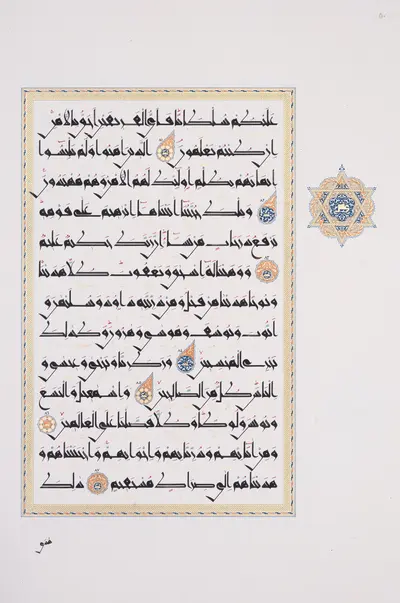 عليكم سلطانا فأي الفريقين أحق بالأمن
إن كنتم تعلمون الذين آمنوا ولم يلبسوا
إيمانهم بظلم أولئك لهم الأمن وهم مهتدون
وتلك حجتنا آتيناها إبراهيم على قومه
نرفع درجات من نشاء إن ربك حكيم عليم
ووهبنا له إسحاق ويعقوب كلا هدينا
ونوحا هدينا من قبل ومن ذريته داود وسليمان و
أيوب ويوسف وموسى وهارون وكذلك
نجزي المحسنين وزكريا ويحيى وعيسى و
إلياس كل من الصالحين وإسماعيل واليسع
ويونس ولوطا وكلا فضلنا على العالمين
ومن آبائهم وذرياتهم وإخوانهم واجتبيناهم و
هديناهم إلى صراط مستقيم ذلك
هدى